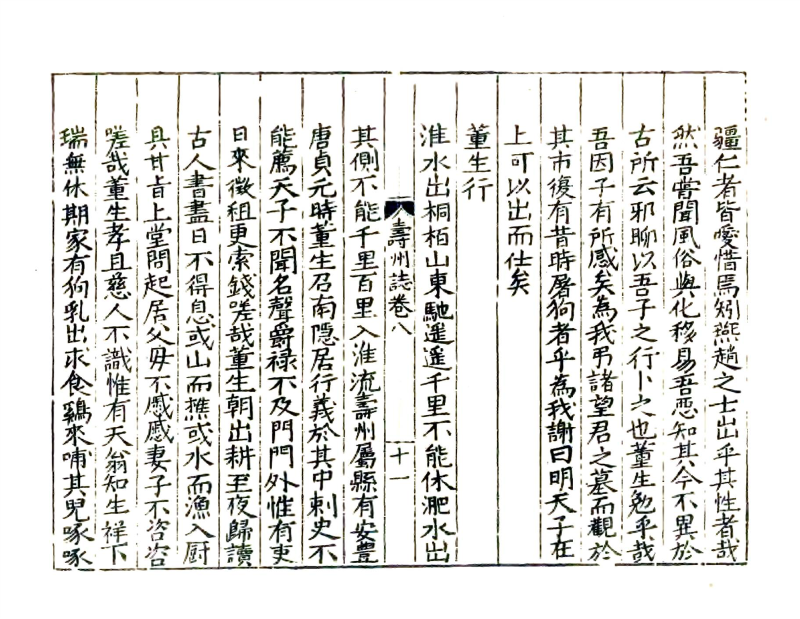 疆仁者皆愛惜焉矧燕趙之士出乎其性者哉
然吾嘗聞風俗與化移易吾惡知其今不異於
古所云邪聊以吾子之行卜之也董生勉乎哉
吾因子有所感矣為我弔諸望君之墓而觀於
其市復有昔時屠狗者乎為我謝曰明天子在
上可以出而仕矣
董生行
淮水出桐栢山東馳遥遥千里不能休淝水出
壽州誌卷八
十一
其側不能千里百里入淮流壽州屬縣有安豊
唐貞元時董生召南隱居行義於其中刺史不
能薦天子不聞名聲爵禄不及門門外惟有吏
日來徵租更索錢嗟哉董生朝出耕至夜歸讀
古人書盡日不得息或山而樵或水而漁入厨
具甘㫖上堂問起居父毋不慼慼妻子不咨咨
嗟哉董生孝且慈人不識惟有天翁知生祥下
瑞無休期家有狗乳出求食鷄來哺其兒啄啄